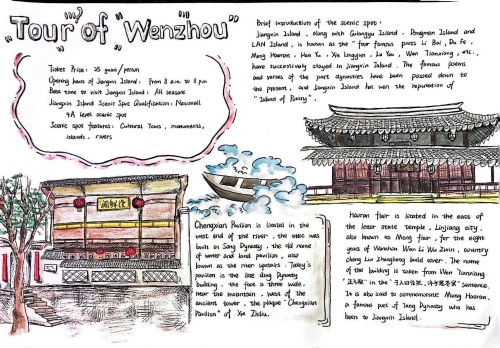 "Tour of "Wenzhou"
Ticket Price: 25 yuan/person
Opening hours of Jiangxin Island: From 8 a.m. to 11 p.m
Best time to visit Jiangxin Island: All seasons
Jiangxin Island Scenic Spot Qualification: National
4A level scenic spot
Scenic spot features: Cultural Tours, monuments,
islands, rivers
Brief introduction of the scenic spot:
Jiangxin Island, along with Gulangyu Island, Dongmen Island and
LAN Island, is known as the "four famous
Li Bai, Du Fu,
Meng Haoran, Han Yu, Xie Lingyun, Lu You, Wen Tianxiang, etc.,
have successively stayed in Jiangxin Island. The famous poems
and verses of the past dynasties have been passed down to
the present, and Jiangxin Island has won the reputation of
"Island of Poetry".
Chengxian Pavilion is located in the
west end of the river, the attic was
built in Song Dynasty, the old name
of water and land pavilion, also
known as the river upstairs. Today's
pavilion is the late Qing Dynasty
building, the face is three wide,
near the mountain, west of the
ancient tower, the plaque "Chengxian
Pavilion" of
Haoran
is located in the east of
the
temple, Linjiang city,
also known as Meng
, for the eighth
years of Wanzhou Wan Li
, country
cheng Liu Zhengheng build
. The name
of the building is taken from Wen Tianxiang
in the
sentence.
It is also said to commemorate Meng Haoran,
a famous poet of Tang Dynasty who has
been to Jiangxin Island.